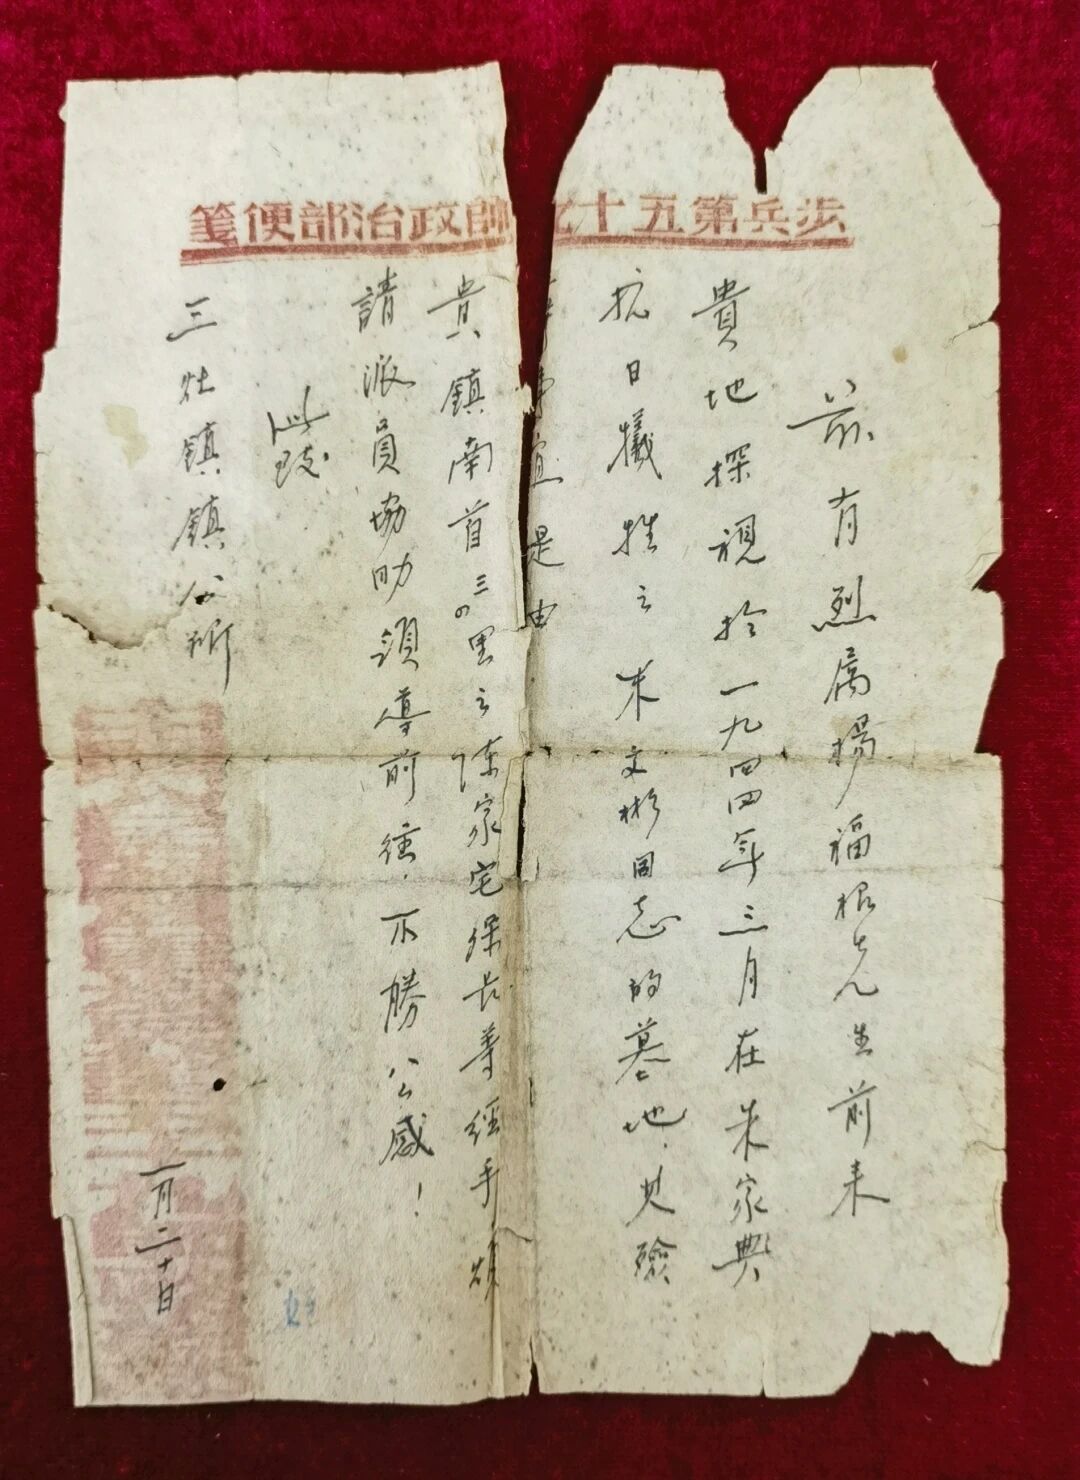 步兵第五十九師政治部便箋
茲有烈属楊福根先生前来
貴地探視於一九四四年三月在朱家典
抗日犧牲之朱文彬同志的墓地，其殮
事宜是由
貴鎮南首三四里之陳家宅保長等經手，煩
請派員協助領導前往，不勝公感！
此致
三灶鎮鎮公所
一月二十日